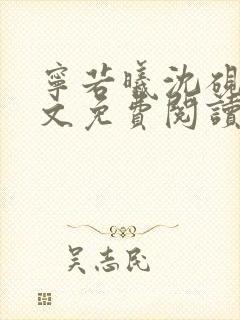 寧若曦沈硯
文免費閱讀
吴志民